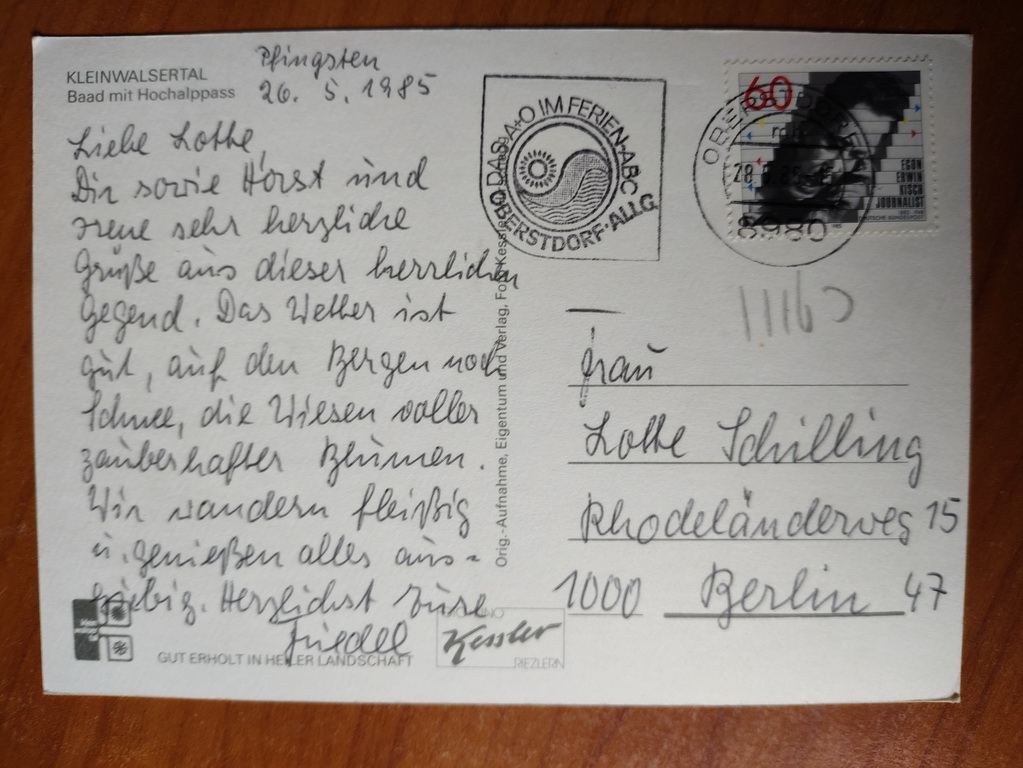 KLEINWALSERTAL
Baad mit Hochalppass
Pfingsten
26. 5. 1985
Liebe Lotte,
Dir sowie Horst und
Irene sehr herzliche
Grüße aus dieser herrlichen
Gegend. Das Wetter ist
gut, auf den Bergen noch
Schnee, die Wiesen voller
zauberhafter Blumen.
Wir wandern fleißig
u. genießen alles aus-
giebig. Herzlichst Eure
Friedel
GUT ERHOLT IN HEILER LANDSCHAFT
Kessler
RIEZLERN
Orig.-Aufnahme, Eigentum und Verlag, Foto Kessler
IM FERIEN-ABC
OBERSTDORF·ALLG.
60
EGON
ERWIN
KISCH
JOURNALIST
DEUTSCHE BUNDESPOST
OBERSTDORF
8980
Frau
Lotte Schilling
Rhodeländerweg 15
1000 Berlin 47